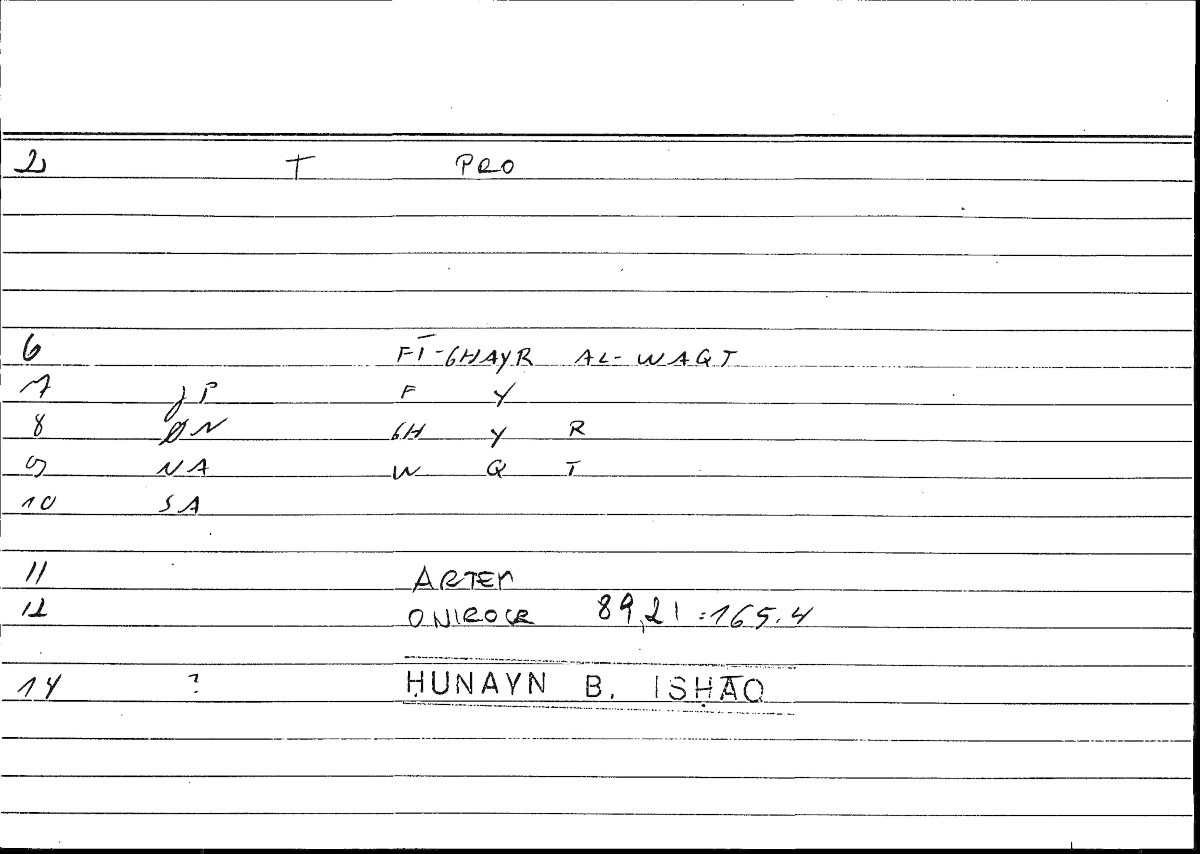 2 T PRO
6 FĪ-GHAYR AL-WAQT
7 JP F Y
8 ØN GH Y R
9 NA W Q T
10 SA
11 ARTEM
12 ONIROCR 89,21 : 165.4
14 ? ḤUNAYN B. ISḤĀQ